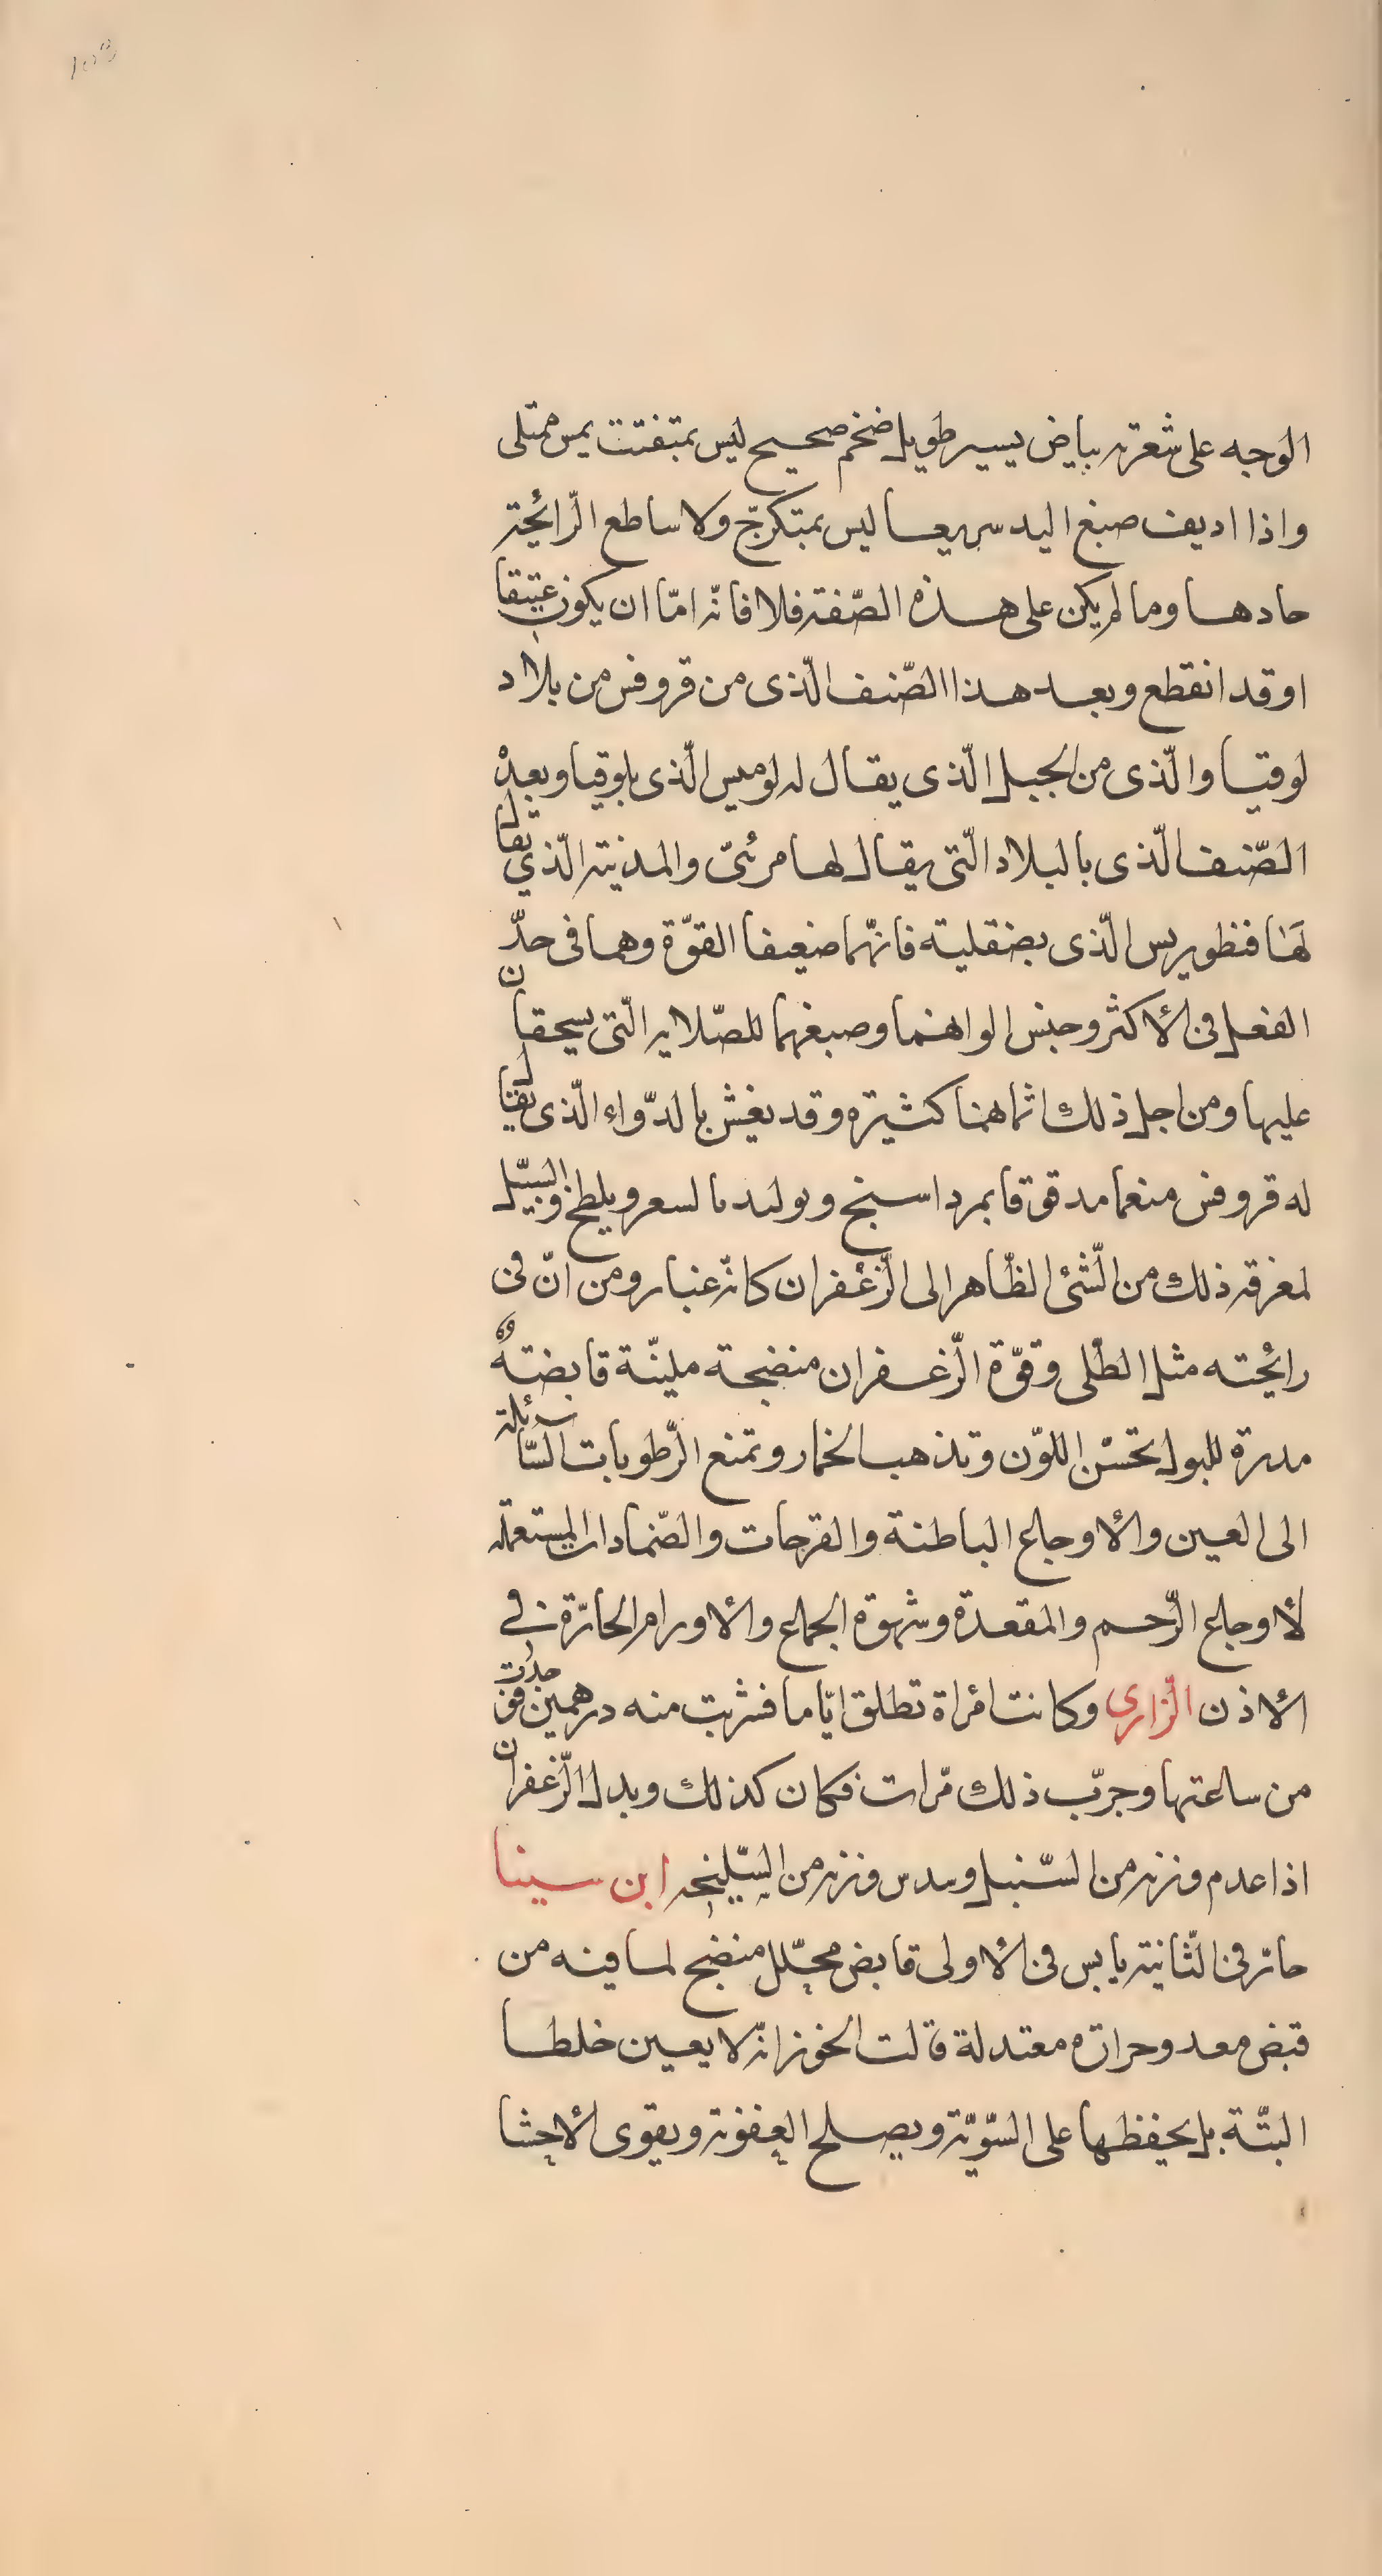 103
الوجه على شعرته بياض يسير طويل ضخم صحيح ليس بمتفتت يمس ممتلى
واذا اديف صبغ اليد سريعا ليس بمتكرّج ولا ساطع الرّائحة
حادها وما لم يكن على هذه الصّفة فلا فانّه امّا ان يكون عتيقا
او قد انقطع وبعد هذا الصّنف الّذى من قروفس من بلاد
لوقيا والّذى من الجبل الّذى يقال له لوميس الّذى بلوقيا وبعده
الصّنف الّذى بالبلاد الّتى يقال لها مرئىّ والمدنية الّذي يقال
لها فنظوريس الّذى بضقلية فانّهما ضعيفا القوّة وهما فى حدّ
الفعل فى الأكثر وجنس الواهنما وصبغهما للصّلايه الّتى يسحقان
عليها ومن اجل ذلك اثماهنا كثيرة وقد يغش بالدّواء الّذى يقال
له قروفس منعما مدقوقا بمرداسنج ويوليد مالسعر ويلطخ والسّبيل
لمغرقة ذلك من الشّئ الظّاهر الى الزّعْفران كانّه غبار ومن انّ فى
رائحته مثل الطّلى وقوّة الزّغفران منضجة مليّنة قابضته وه
مدرة للبول تحسّن اللوّن وتذهب الخمار وتمنع الرّطوبات السّائلة
الى العين والأوجاع الباطنة والفرجات والضّمادات المستعملة
لأوجاع الرّحم والمقعدة وشهوة الجماع والأورام الحارّة فى
الأذن الرّازى وكانت امْراة تطلق ايّاما فشربت منه درهمين فولدت
من ساعتها وجرّب ذلك مرّات فكان كذلك وبدل الزّغفران
اذا عدم وزنه من السّنبل وسدس وزنه من السّليخه ابن سينا
حارّ فى الثّانية يابس فى الأولى قابض محلّل منضج لما فيه من
قبض معد وحراره معتدلة قالت الخوز انّه لا يعين خلطا
البتّة بل يحفظها على السّويّة ويصلح العفونة ويقوى الأحشا